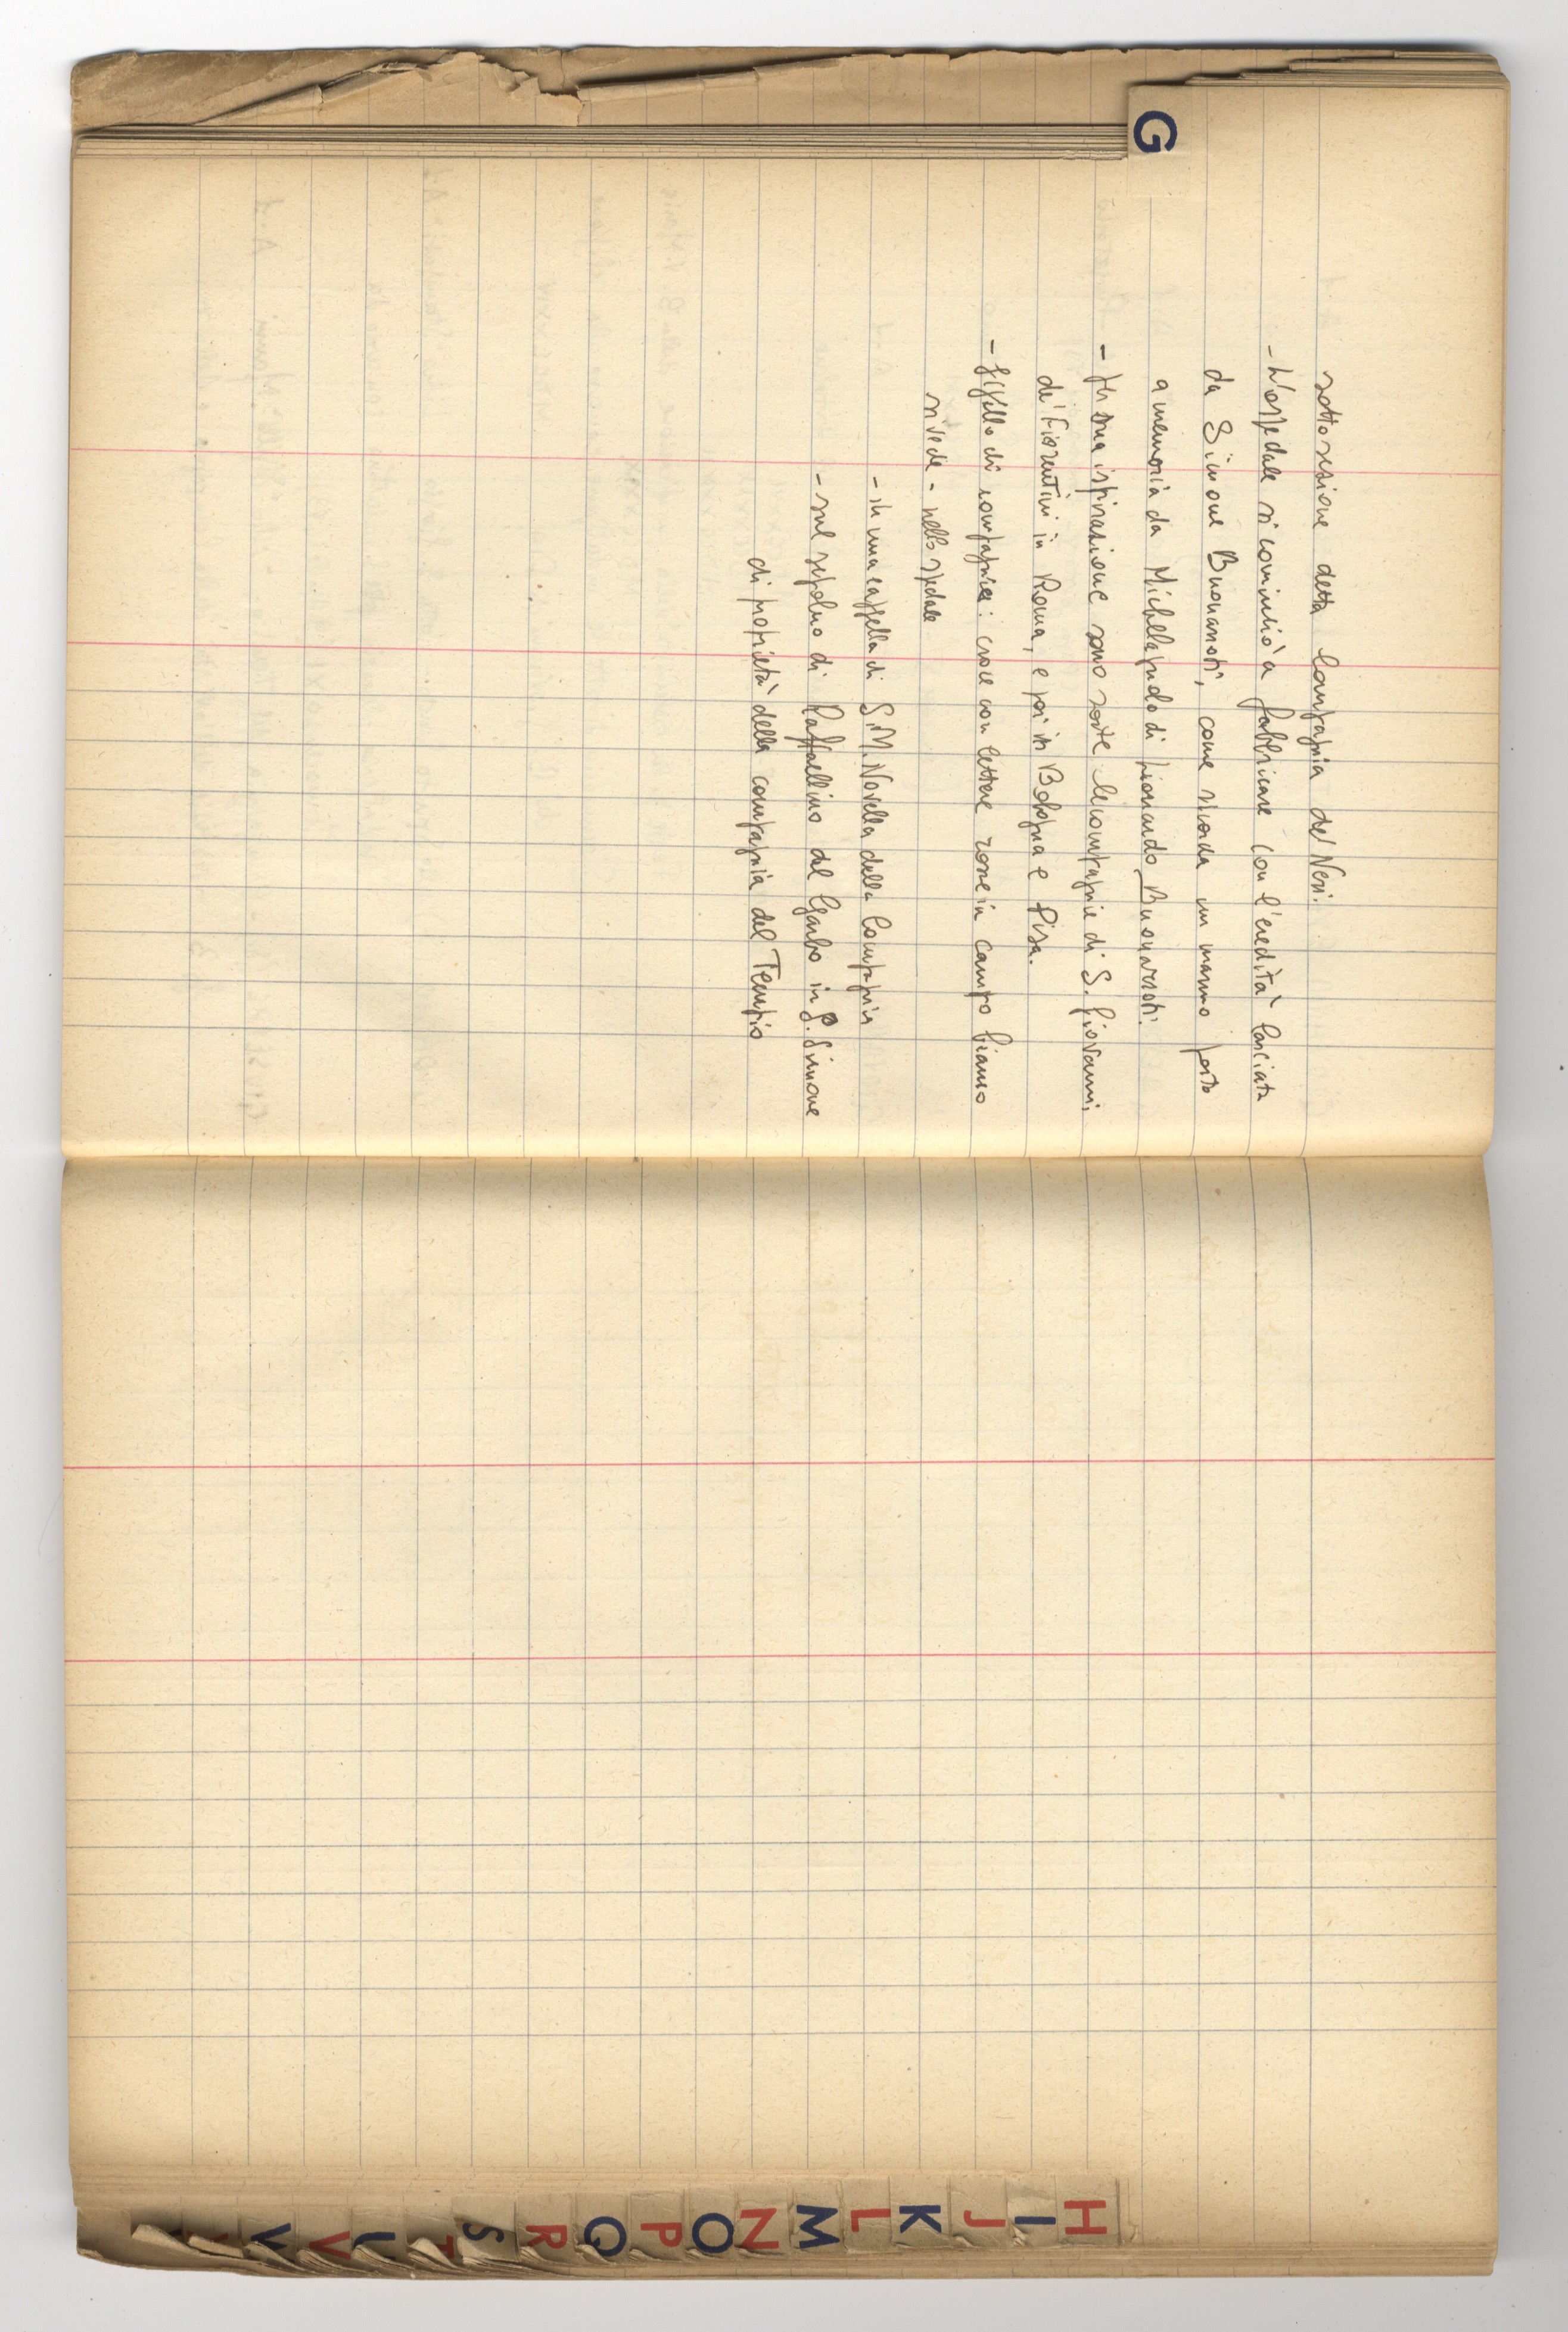 G
sottosezione detta Compagnia de' Neri.
- L'ospedale si cominciò a fabbricare con l'eredità lasciata
da Simone Buonarroti, come ricorda un marmo posto
a memoria da Michelagnolo di Lionardo Buonarroti.
- Per sua ispirazione sono sorte le compagnie di S. Giovanni,
de' Fiorentini in Roma, e poi in Bologna e Pisa.
- Sigillo di compagnia: croce con lettere rosse in campo bianco
si vede - nello spedale
- in una cappella di S.M. Novella della Compagnia
- sul sepolcro di Raffaellino del Garbo in S. Simone
di proprietà della compagnia del Tempio
H
I
J
K
L
M
N
O
P
Q
R
S
T
U
V